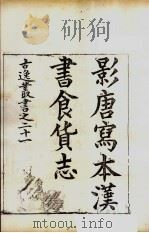 影唐寫本漢
書食貨志
古逸叢書之二十一
mtoou.info